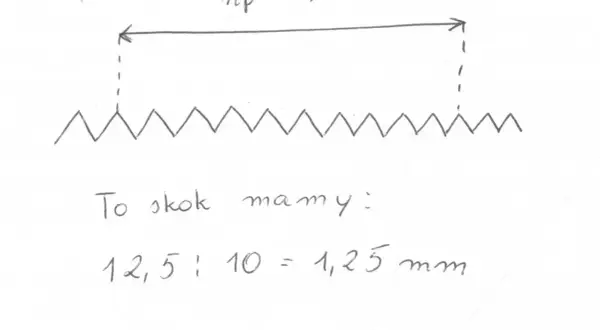 To skok mamy:
12,5 : 10 = 1,25 mm